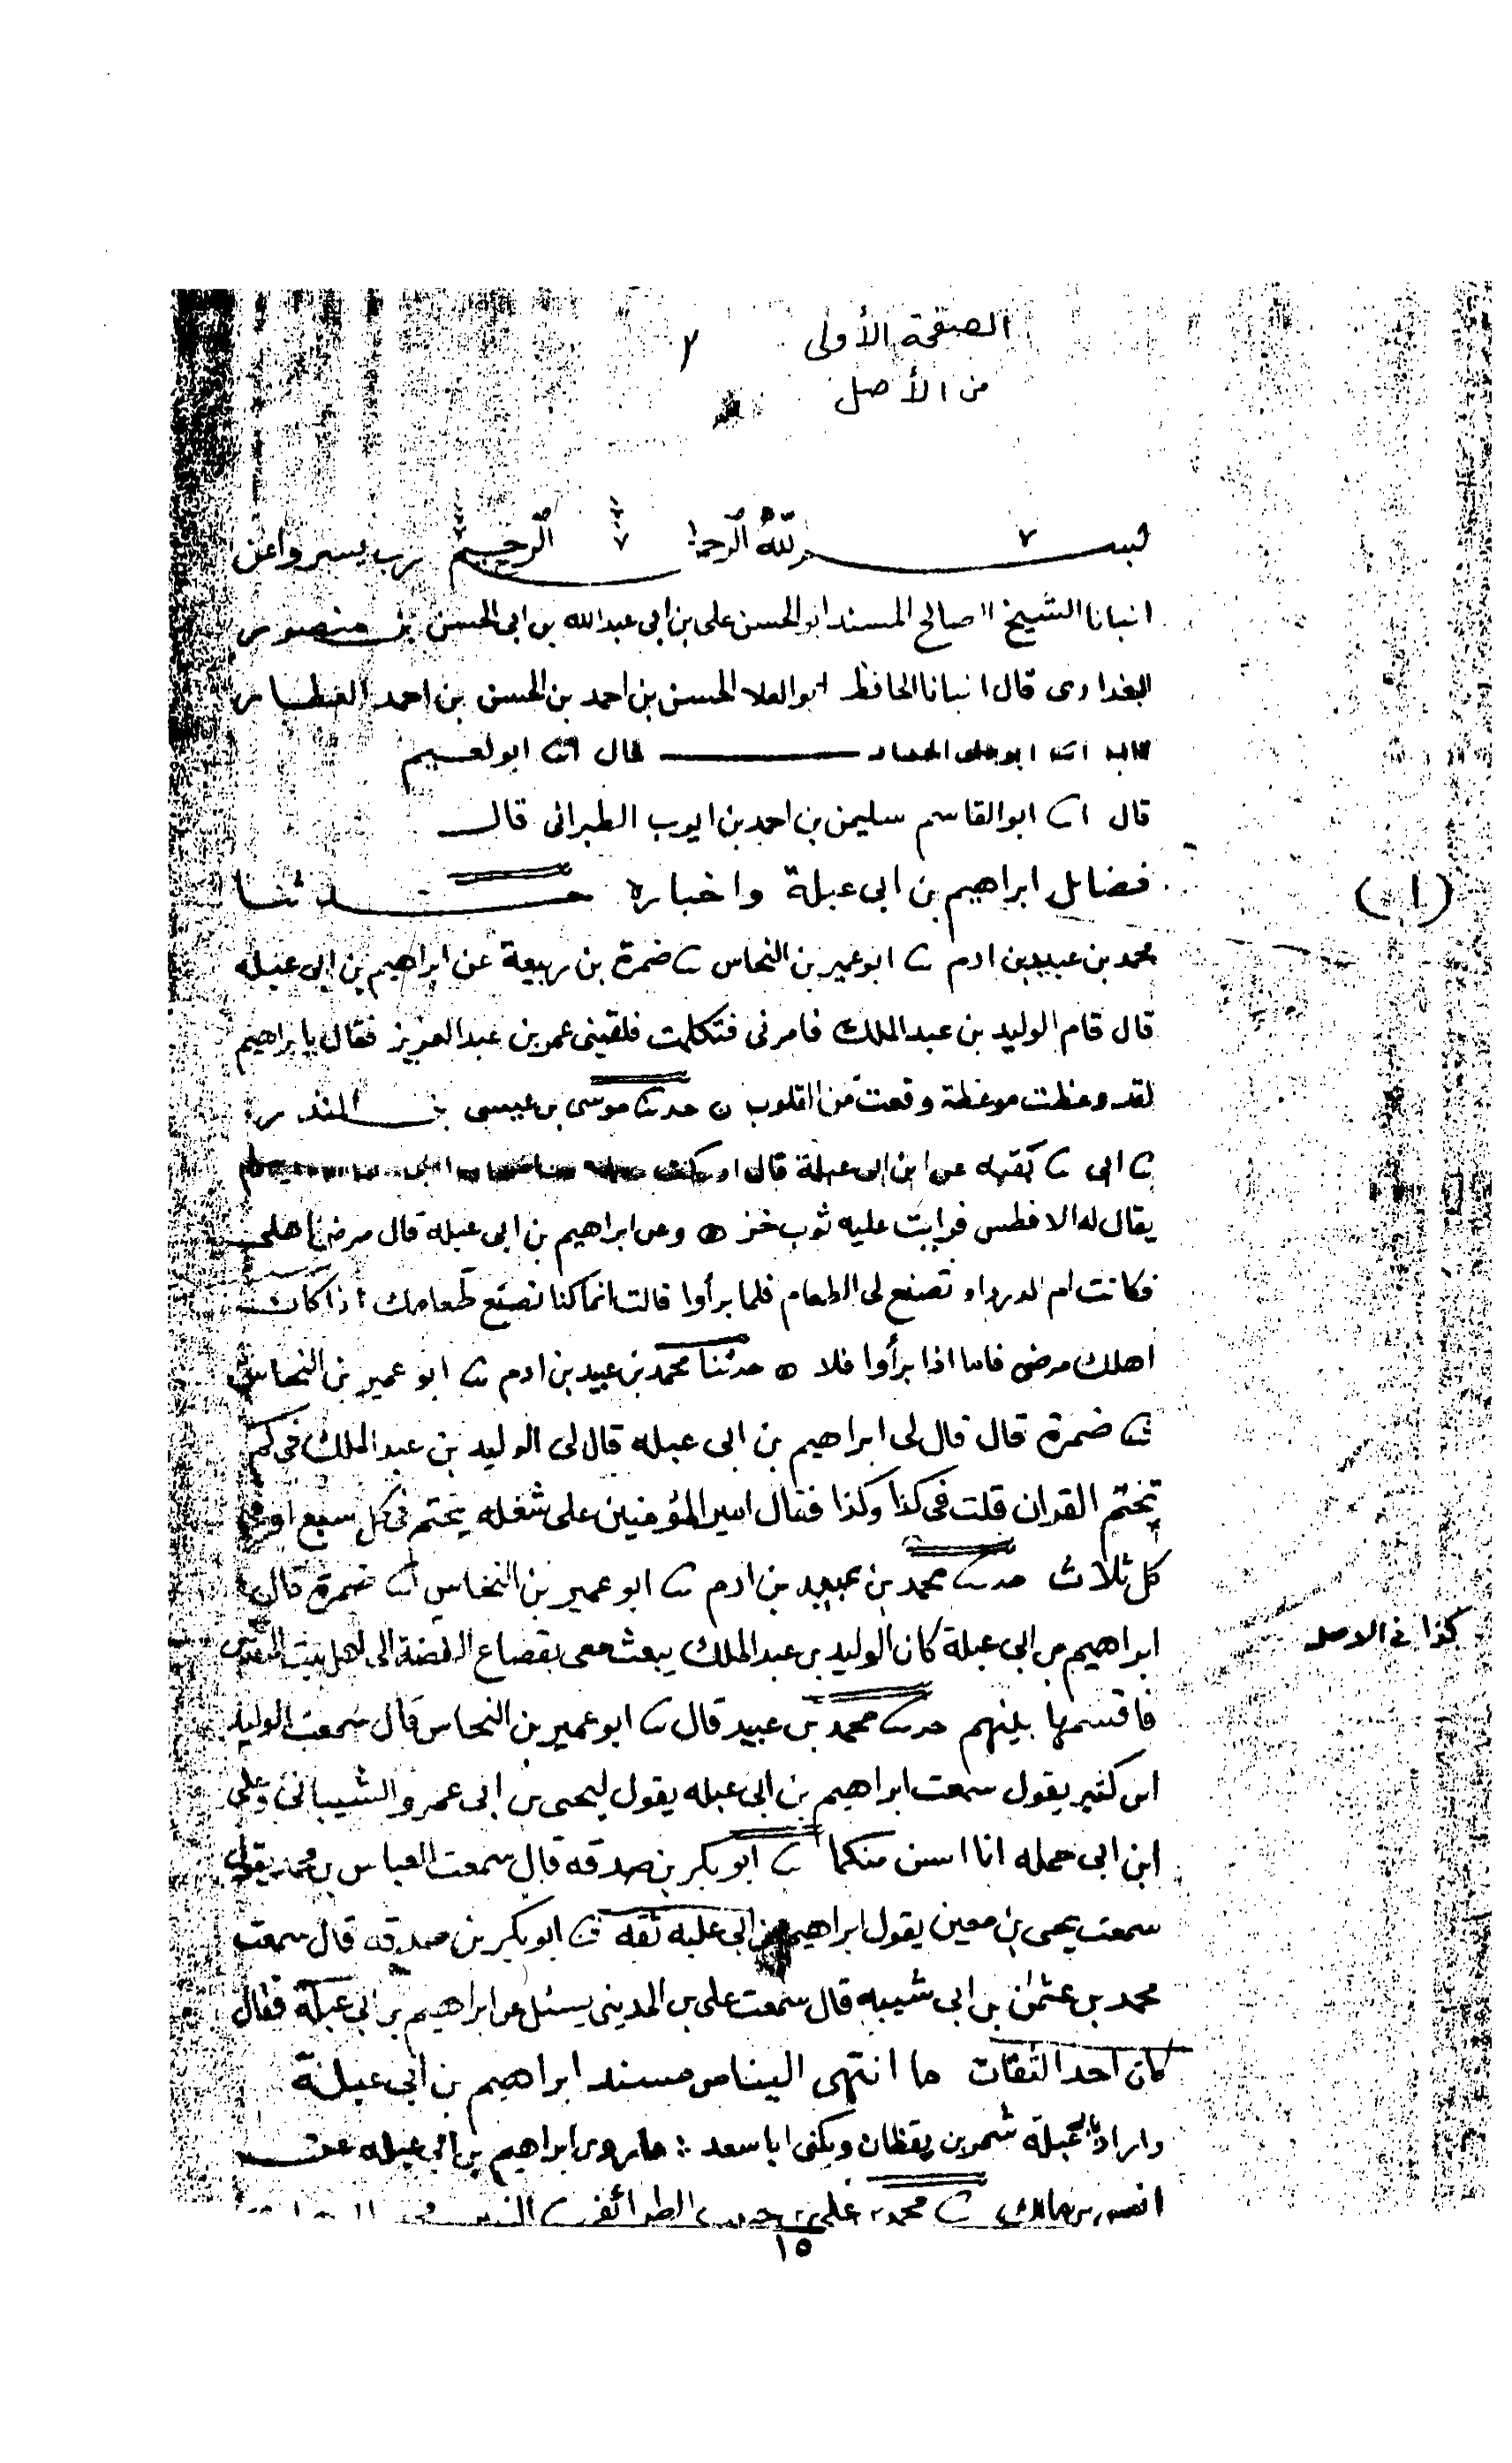 الصفحة الأولى
من الأصل
٢
بسم الله الرحمن الرحيم رب يسر واعن
انبانا الشيخ الصالح المسند ابو الحسن على بن ابى عبد الله بن ابى الحسن بن منصور
البغدادى قال انبانا الحافظ ابو العلا الحسن بن احمد بن الحسن بن احمد العطار
قال انا ابو على الحداد قال انا ابو نعيم
قال انا ابو القاسم سليمن بن احمد بن ايوب الطبرانى قال
فضايل ابراهيم بن ابى عبلة واخباره حدثنا
(١)
محمد بن عبيد بن ادم نا ابو عمير بن النحاس نا ضمرة بن ربيعة عن ابراهيم بن ابى عبله
قال قام الوليد بن عبد الملك فامرنى فتكلمت فلقينى عمر بن عبد العزيز فقال يا ابراهيم
لقد وعظت موعظة وقعت من القلوب حدثنا موسى بن عيسى بن المنذر
نا ابى نا بقيه عن ابن ابى عبلة قال
يقال له الافطس فرايت عليه ثوب خز وعن ابراهيم بن ابى عبلة قال مرض اهلى
فكانت ام الدرداء تصنع لى الطعام فلما برأوا قالت انما كنا نصنع طعامك اذا كان
اهلك مرضى فاما اذا برأوا فلا حدثنا محمد بن عبيد بن ادم نا ابو عمير بن النحاس
نا ضمرة قال قال لى ابراهيم بن ابى عبله قال لى الوليد بن عبد الملك فى كم
تختم القران قلت فى كذا وكذا فقال امير المؤمنين على شغله يختم فى كل سبع او فى
كل ثلاث حدثنا محمد بن عبيد بن ادم نا ابو عمير بن النحاس نا ضمرة قال
ابراهيم بن ابى عبلة كان الوليد بن عبد الملك يبعث معى بقصاع الفضة الى اهل بيت المقدس
كذا فى الاصل
فاقسمها بينهم حدثنا محمد بن عبيد قال نا ابو عمير بن النحاس قال سمعت الوليد
ابن كثير يقول سمعت ابراهيم بن ابى عبله يقول ليحيى بن ابى عمرو الشيبانى وعلى
ابن ابى حمله انا اسن منكما نا ابو بكر بن صدقه قال سمعت العباس بن محمد يقول
سمعت يحيى بن معين يقول ابراهيم بن ابى عبله ثقه نا ابو بكر بن صدقه قال سمعت
محمد بن عثمن بن ابى شيبه قال سمعت على بن المدينى يسئل عن ابراهيم بن ابى عبلة فقال
كان احد الثقات ما انتهى الينا من مسند ابراهيم بن ابى عبلة
عبلة شمر بن يقظان ويكنى ابا سعد : ما روى ابراهيم بن ابى عبله عن
انس بن مالك نا محمد بن على الطرائفى
١٥